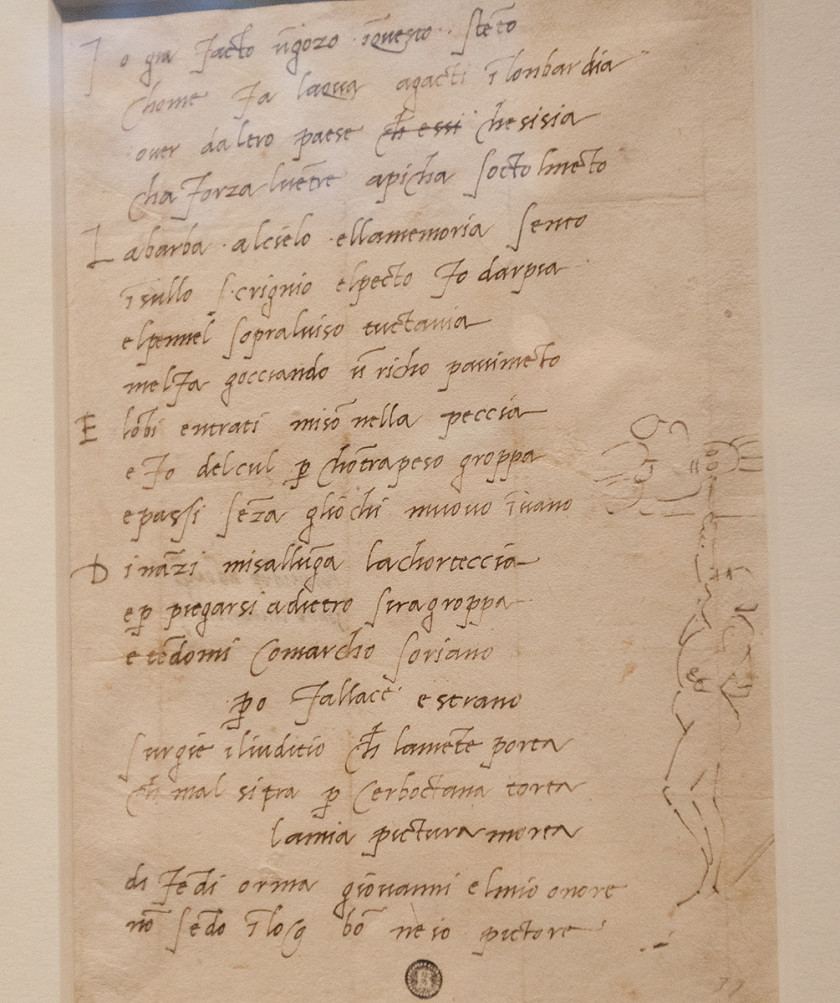 Io gia facto ūgozo īquesto stēto
chome fa laqua agacti īlonbardia
over daltro paese ch̄ essi chesisia
chaforza lvētre apicha socto lmēto
Labarba alcielo ellamemoria sento
īsullo scrignio elpecto fo darpia
elpennel sopraluiso tuctavia
melfa gocciando ū richo pavimēto
E lōbi entrati misō nella peccia
e fo delcul p̱ chōtrapeso groppa
e passi sēza gliochi muovo īuano
Dināzi misallūga lachorteccia
ep̱ piegarsi adietro siragroppa
e tēdomi comarcho soriano
p̱o fallace e strano
surgie iliuditio ch̄ lamēte porta
ch̄ mal sitra p̱ cerboctana torta
lamia pictura morta
di fēdi orma giovanni elmio onore
nō sēdo īloq bō ne io pictore
37